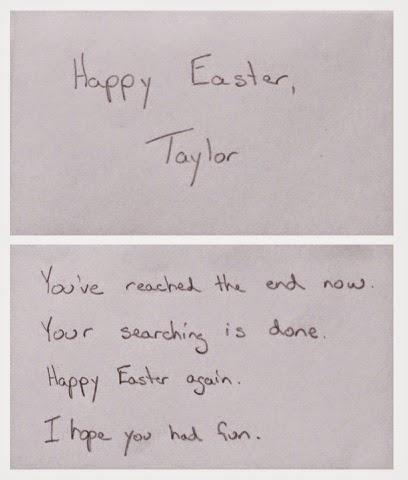 Happy Easter,
Taylor
You've reached the end now.
Your searching is done.
Happy Easter again.
I hope you had fun.